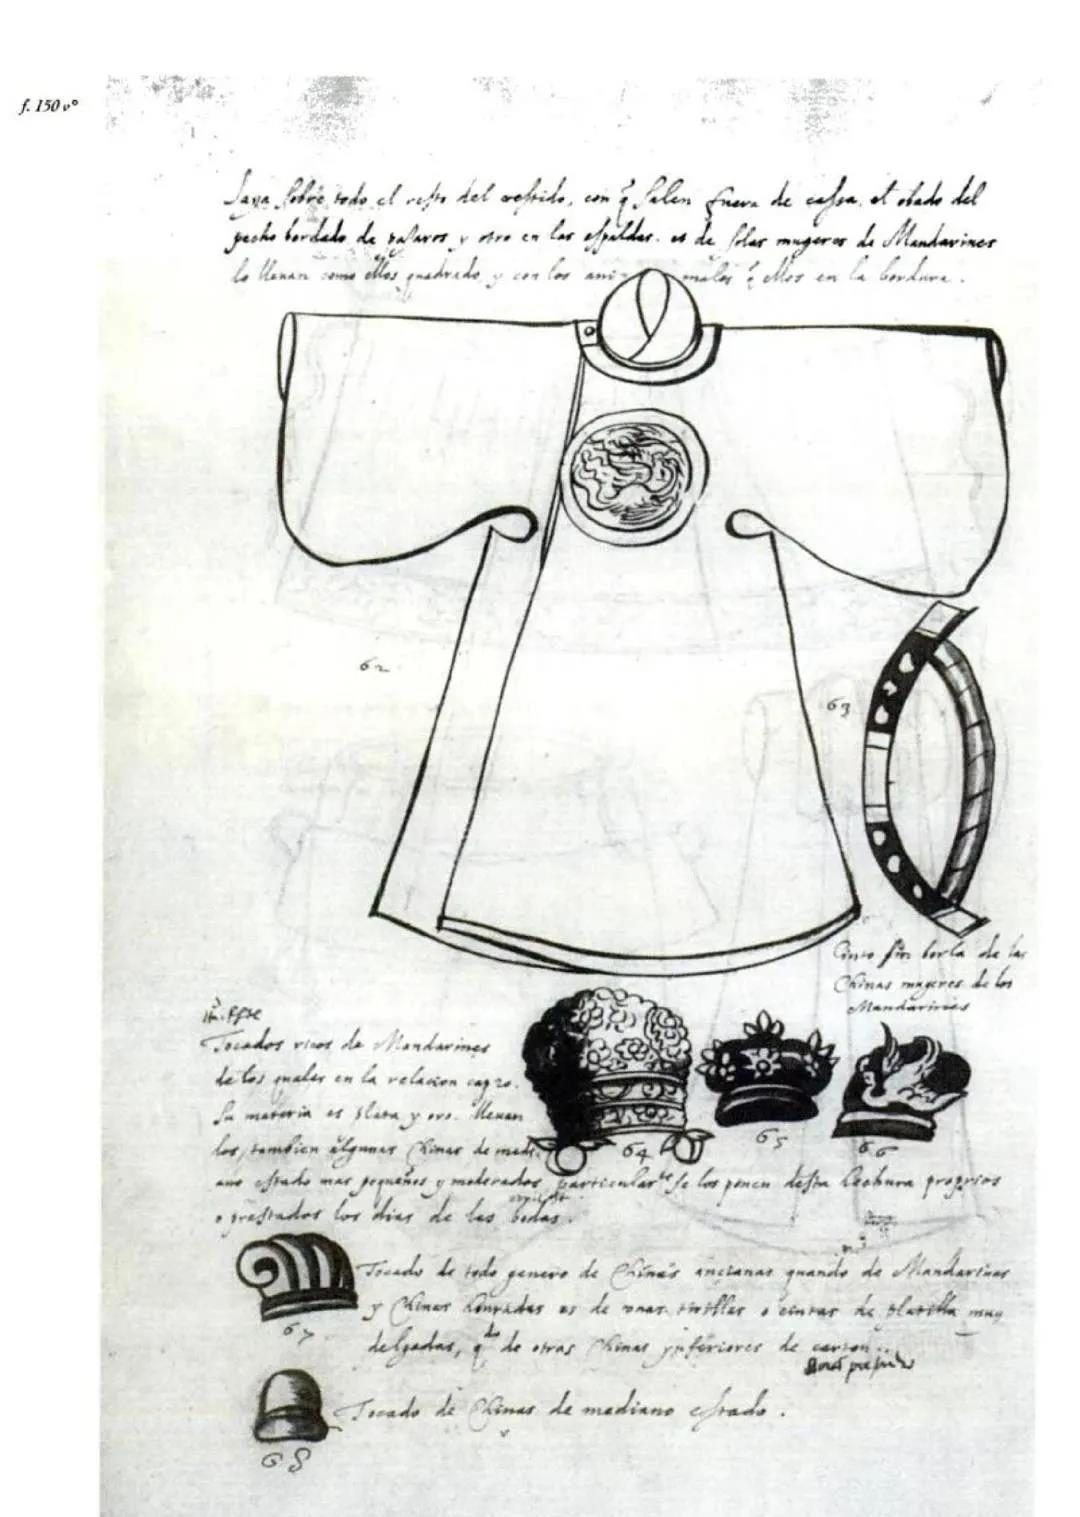 f. 150 vº
Saya sobre todo el resto del vestido, con q̃ salen fuera de cassa, el obado del
pecho bordado de pajaros y otro en las espaldas. es de solas mugeres de Mandarines
lo lleuan como ellos quadrado, y con los ani males q̃ ellos en la bordura.
62
63
Cinto sin borla de las
Chinas mugeres de los
Mandarines
Tocados ricos de Mandarines
de los quales en la relacion cap
Su materia es plata y oro. lleuan
los tambien algunas Chinas de medi
ano estado mas pequeños y moderados, particular.te se los ponen desta hechura proprios
o prestados los dias de las bodas.
64
65
66
Tocado de todo genero de Chinas ancianas quando de Mandarines
y Chinas honradas es de vnas tirillas o cintas de platilla muy
delgadas, q.do de otras Chinas ynferiores de carton
67
Tocado de Chinas de mediano estado.
68